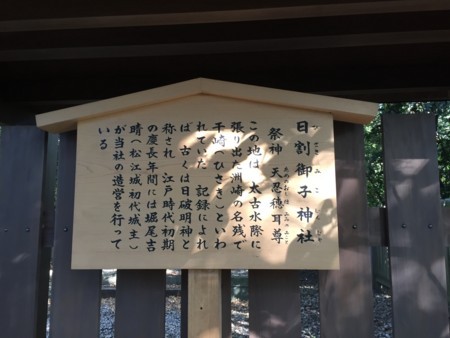 日割御子神社
ひさきみこじんじゃ
祭神 天忍穂耳尊
あめのおしほみみのみこと
この地は、太古水際に
張り出た洲崎の名残で
干崎(ひさき)といわ
れていた 記録によれ
ば 古くは日破明神と
称され 江戸時代初期
の慶長年間には堀尾吉
晴(松江城初代城主)
が当社の造営を行って
いる